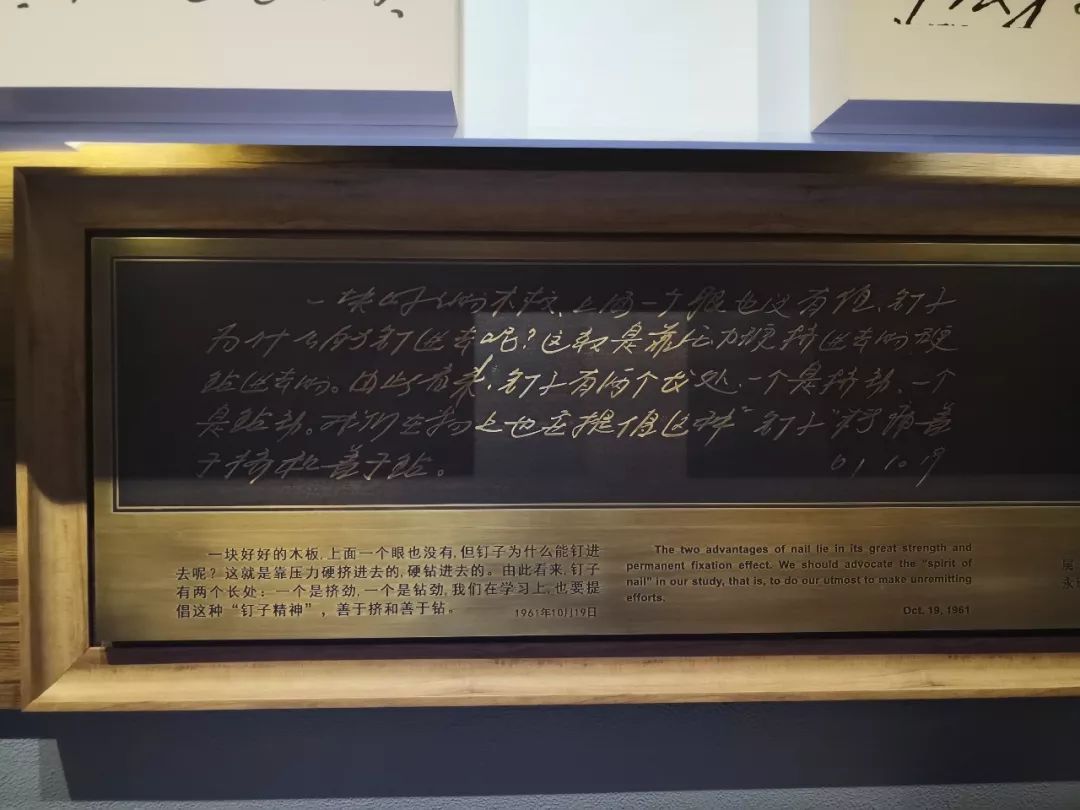 一块好好的木板,上面一个眼也没有,但钉子
为什么能钉进去呢?这就是靠压力硬挤进去的,硬
钻进去的。由此看来,钉子有两个长处,一个是挤劲,一个
是钻劲。我们在学习上也要提倡这种"钉子"精神,善
于挤和善于钻。
61.10.19
一块好好的木板,上面一个眼也没有,但钉子为什么能钉进
去呢?这就是靠压力硬挤进去的,硬钻进去的。由此看来,钉子
有两个长处:一个是挤劲,一个是钻劲,我们在学习上,也要提
倡这种“钉子精神”,善于挤和善于钻。
1961年10月19日
The two advantages of nail lie in its great strength and
permanent fixation effect. We should advocate the "spirit of
nail" in our study, that is, to do our utmost to make unremitting
efforts.
Oct. 19, 1961